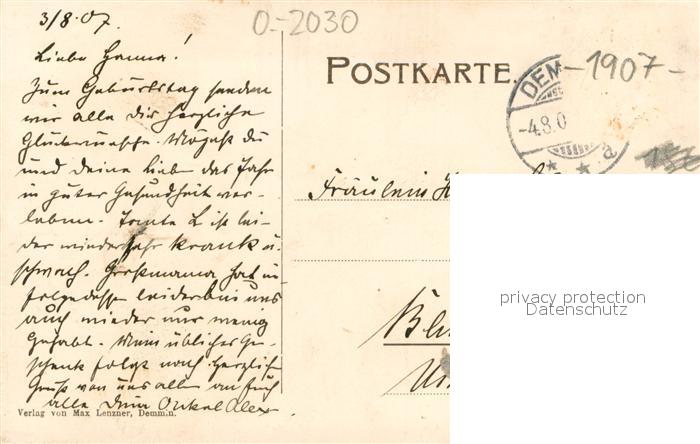 3/8.07.
O.-2030
Liebe Hanna!
Zum Geburtstag senden
wir alle Dir herzliche
Glückwünsche. Mögest du
und deine Lieben das Jahr
in guter Gesundheit ver-
leben. Tante L ist lei-
der wieder sehr krank u.
schwach. Großmama hat in-
folgedessen leider bei uns
auch wieder nur wenig
gehabt. Mein übliches Ge-
schenk folgt nach. Herzliche
Gruß von uns allen an Euch
alle Dein Onkel Alex
Verlag von Max Lenzner, Demmin.
POSTKARTE.
DEM
-1907-
-4.8.0
a
Fräulein
privacy protection
Datenschutz